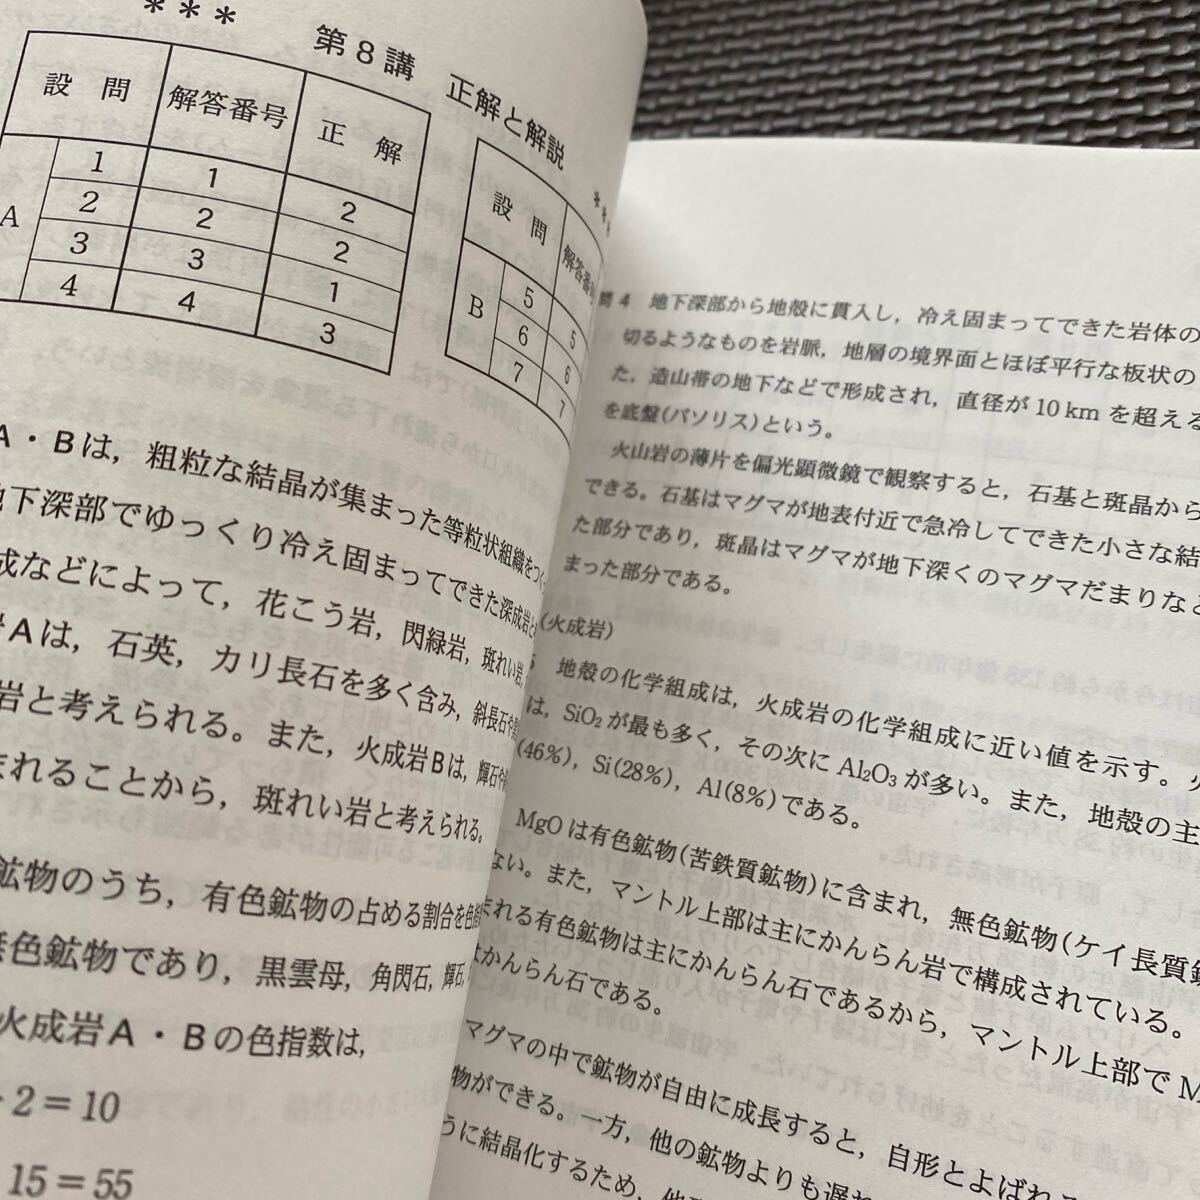 *** 第8講 正解と解説 ***
設問 解答番号 正解
A 1 1 2
2 2 2
3 3 1
4 4 3
設問 解答番号
B 5 5
6 6
7 7
A・Bは，粗粒な結晶が集まった等粒状組織をつく
地下深部でゆっくり冷え固まってできた深成岩と
成などによって，花こう岩，閃緑岩，斑れい岩，
岩Aは，石英，カリ長石を多く含み，斜長石や黒
岩と考えられる。また，火成岩Bは，輝石や
まれることから，斑れい岩と考えられる。
鉱物のうち，有色鉱物の占める割合を色指
無色鉱物であり，黒雲母，角閃石，輝石，
火成岩A・Bの色指数は，
2＝10
15＝55
問4 地下深部から地殻に貫入し，冷え固まってできた岩体の
切るようなものを岩脈，地層の境界面とほぼ平行な板状の
た，造山帯の地下などで形成され，直径が10 kmを超える
を底盤(バソリス)という。
火山岩の薄片を偏光顕微鏡で観察すると，石基と斑晶から
できる。石基はマグマが地表付近で急冷してできた小さな結
た部分であり，斑晶はマグマが地下深くのマグマだまりなど
まった部分である。
(火成岩)
5 地殻の化学組成は，火成岩の化学組成に近い値を示す。
は，SiO₂が最も多く，その次にAl₂O₃が多い。また，地殻の主
(46%)，Si(28%)，Al(8%)である。
MgOは有色鉱物(苦鉄質鉱物)に含まれ，無色鉱物(ケイ長質鉱
ない。また，マントル上部は主にかんらん岩で構成されている。
まれる有色鉱物は主にかんらん石であるから，マントル上部でM
はかんらん石である。
マグマの中で鉱物が自由に成長すると，自形とよばれる
物ができる。一方，他の鉱物よりも遅れ
うに結晶化するため，他